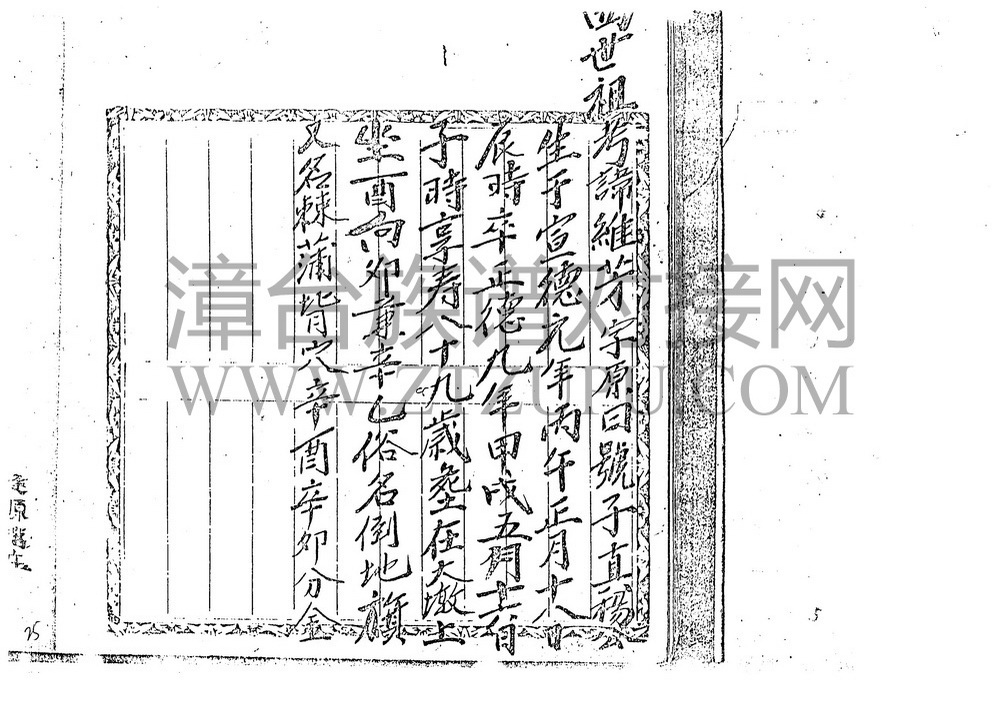 世祖考諱維芳字原曰號子直楊公
生于宣德元年丙午正月十八日
辰時卒正德九年甲戌五月十一日
子時享壽八十九歲塟在大墩上
坐酉向卯兼辛乙俗名倒地旗
又名棘蒲背穴辛酉辛卯分金
漳台族谱对接网
WWW.ZTZUPU.COM
25
5